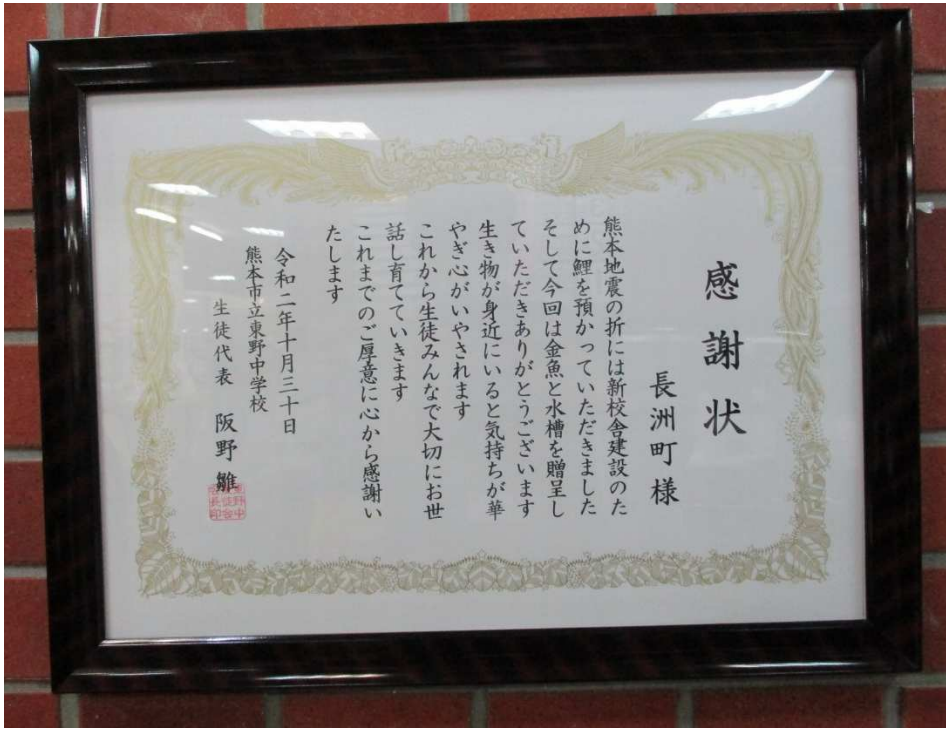 感謝状
長洲町様
熊本地震の折には新校舎建設のた
めに鯉を預かっていただきました
そして今回は金魚と水槽を贈呈し
ていただきありがとうございます
生き物が身近にいると気持ちが華
やぎ心がいやされます
これから生徒みんなで大切にお世
話し育てていきます
これまでのご厚意に心から感謝い
たします
令和二年十月三十日
熊本市立東野中学校
生徒代表 阪野 雛